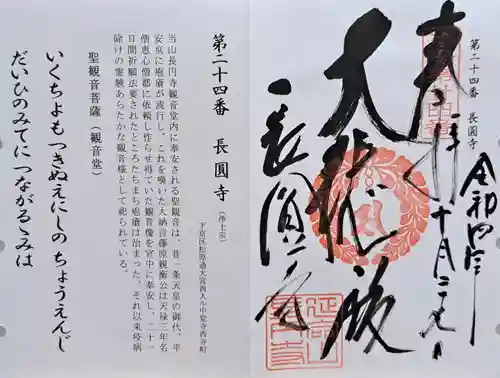 第二十四番 長圓寺
奉拝
令和四年
十月二十九日
大悲殿
長圓寺
第二十四番 長圓寺 (浄土宗)
下京区松原通大宮西入ル中堂寺西寺町
当山長円寺観音堂内に奉安される聖観音は、昔一条天皇の御代、平
安京に疱瘡が流行し、これを嘆いた大納言藤原観衡公は天禄三年名
僧恵心僧都に依頼し作らせ得ていた観音像を宮中に奉安し、二十一
日間祈願法要されたところたちまち疱瘡は治まった。それ以来疫病
除けの霊験あらたかな観音様として祀られている。
聖観音菩薩(観音堂)
いくちよもつきぬえにしのちょうえんじ
だいひのみてにつながるゝみは